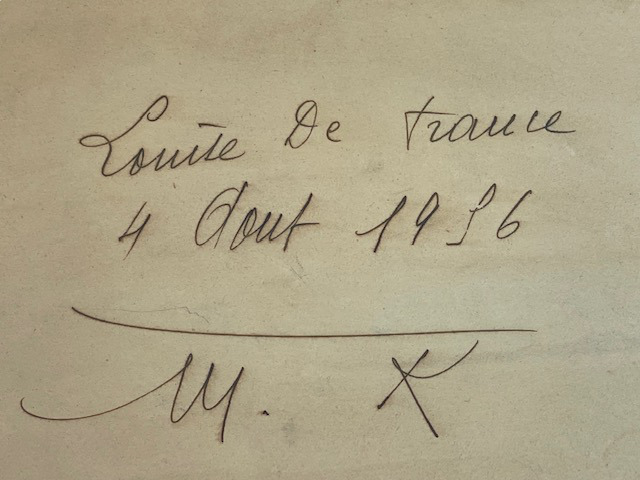 Louise De France
4 Aout 1956
M. K